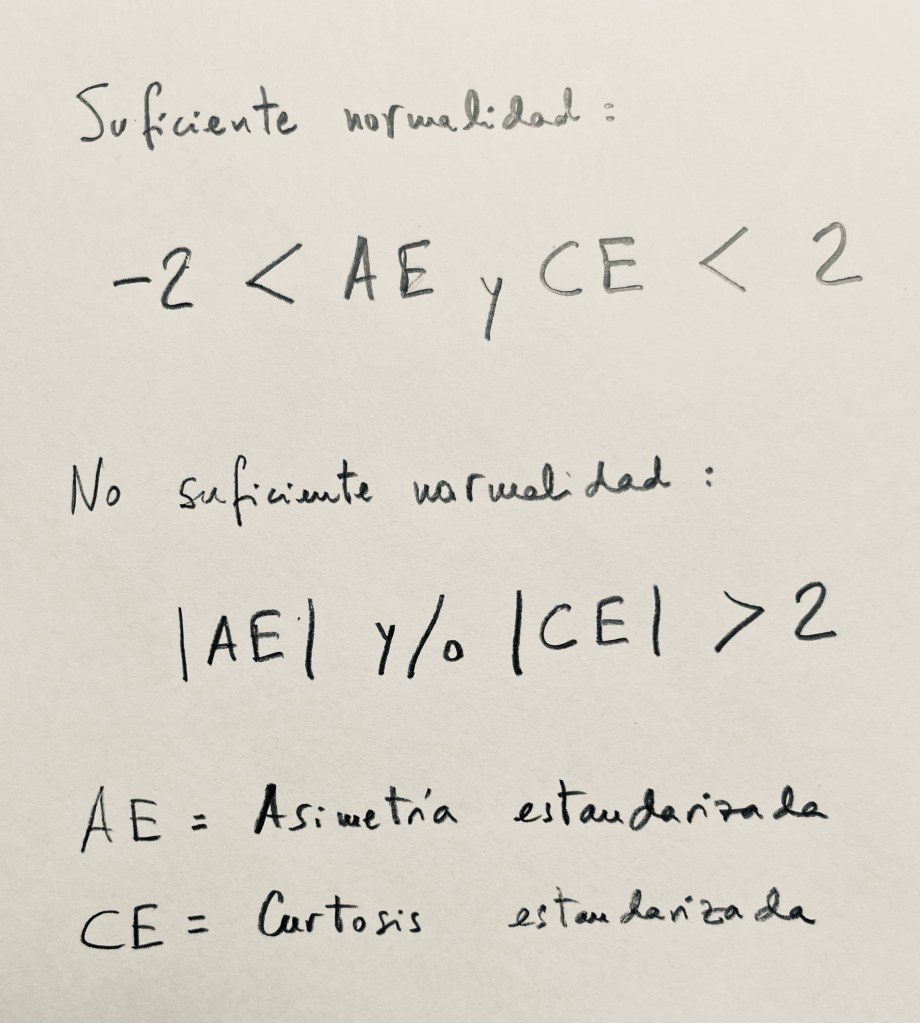 Suficiente normalidad:
-2 < AE y CE < 2
No suficiente normalidad:
|AE| y/o |CE| > 2
AE = Asimetría estandarizada
CE = Curtosis estandarizada